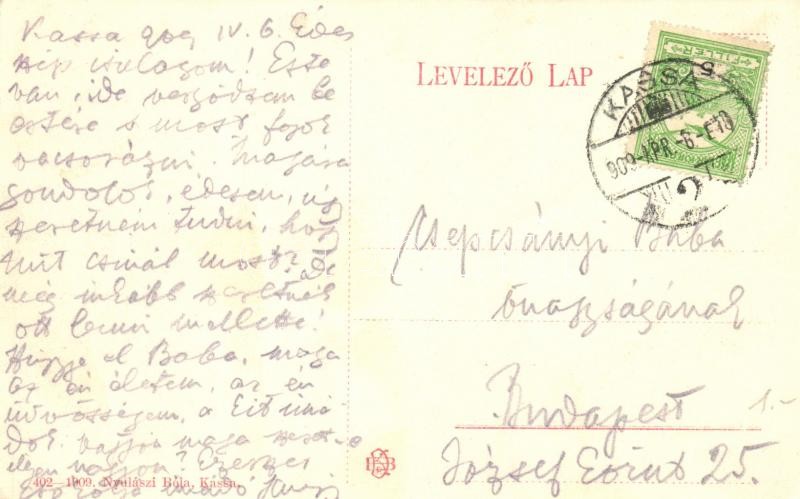 Kassa 909 IV. 6. Édes
szép csillagom! Este
van, ide vergődtem be
estére s most fogok
vacsorázni. Magára
gondolok, édesem, úgy
szeretném tudni, hogy
mit csinál most? De
még inkább szeretnék
ott lenni mellette!
Higyje el Baba, maga
az én életem, az én
üdvösségem, a kit imá-
dok. maga
nagyon? Ezerszer

402 - 1909. Nyulászi Béla, Kassa.
LEVELEZŐ LAP
FILLÉR
KASSA
909 APR. -6. E10
Csepcsányi Baba
őnagyságának
Budapest
József körút 25.
1.-